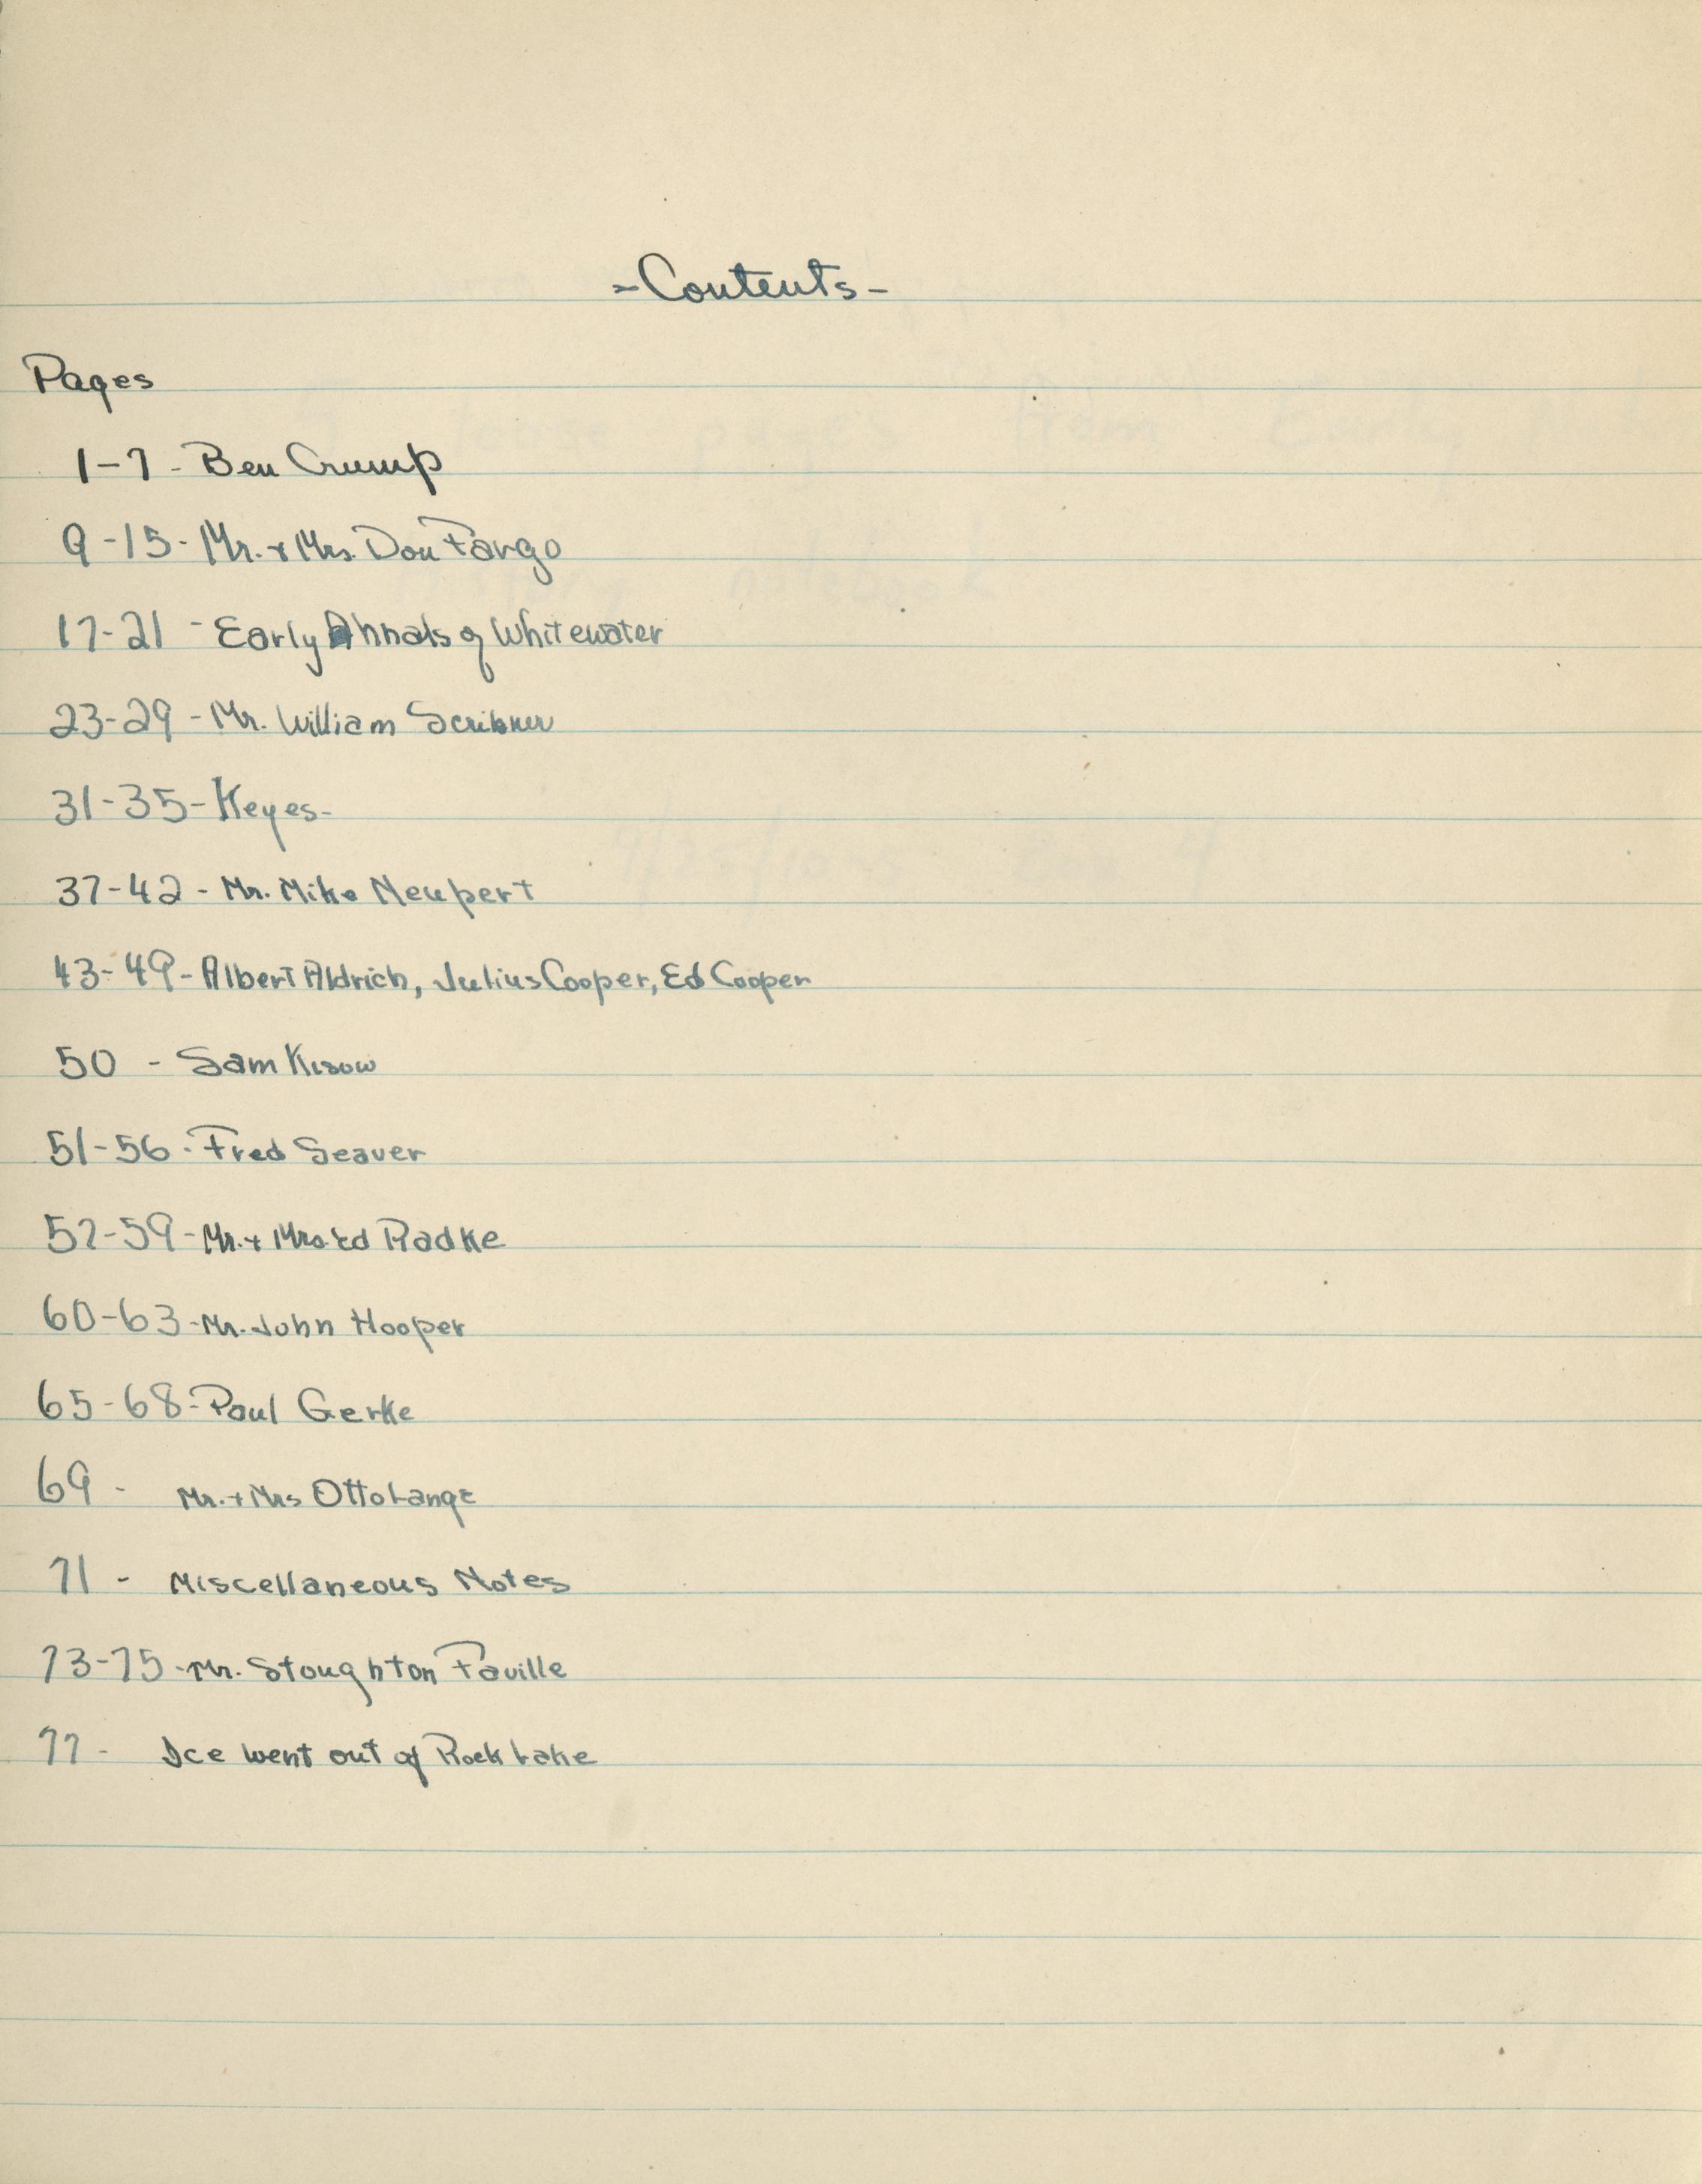 - Contents -
Pages
1-7 - Ben Crump
9-15- Mr. + Mrs. Don Fargo
17-21 - Early Annals of Whitewater
23-29 - Mr. William Scribner
31-35- Keyes-
37-42 - Mr. Mike Neupert
43-49- Albert Aldrich, Julius Cooper, Ed Cooper
50 - Sam Kisow
51-56 - Fred Seaver
57-59- Mr. + Mrs Ed Radke
60-63-Mr. John Hooper
65-68-Paul Gerke
69 - Mr. + Mrs Otto Lange
71 - Miscellaneous Notes
73-75 -Mr. Stoughton Faville
77 - Ice went out of Rock Lake